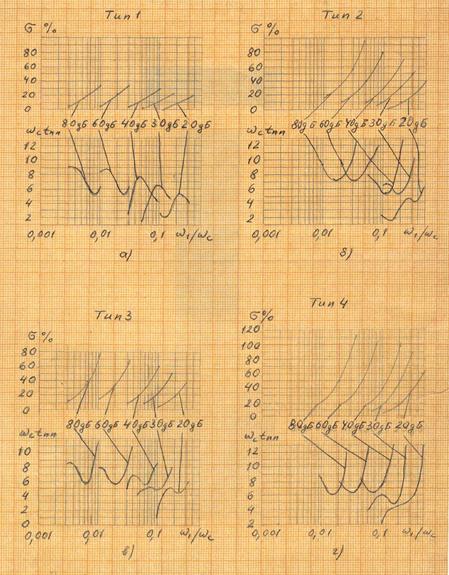 Тип 1
Тип 2
σ %
σ %
80
60
40
20
0
80
60
40
20
0
80дб 60дб 40дб 30дб 20дб
80дб 60дб 40дб 30дб 20дб
ωctпп
ωctпп
12
10
8
6
4
2
12
10
8
6
4
2
0,001 0,01 0,1 ω1/ωc
0,001 0,01 0,1 ω1/ωc
а)
б)
Тип 3
Тип 4
σ %
σ %
80
60
40
20
0
120
100
80
60
40
20
0
80дб 60дб 40дб 30дб 20дб
80дб 60дб 40дб 30дб 20дб
ωctпп
ωctпп
10
8
6
4
2
0
12
10
8
6
4
2
0,001 0,01 0,1 ω1/ωc
0,001 0,01 0,1 ω1/ωc
в)
г)